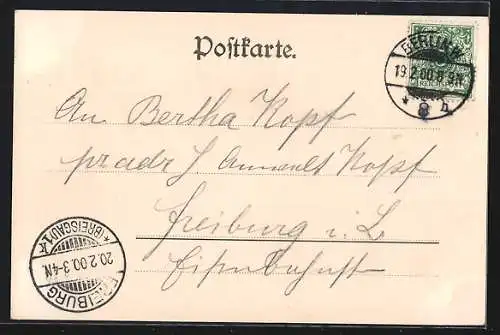 Postkarte.
BERLIN W
19.2.00.8-9N.
* 8 h
An Bertha Kopf
pr adr J Anwalt Kopf
Freiburg i. B.
FREIBURG
20.2.00.3-4N.
* (BREISGAU) 1